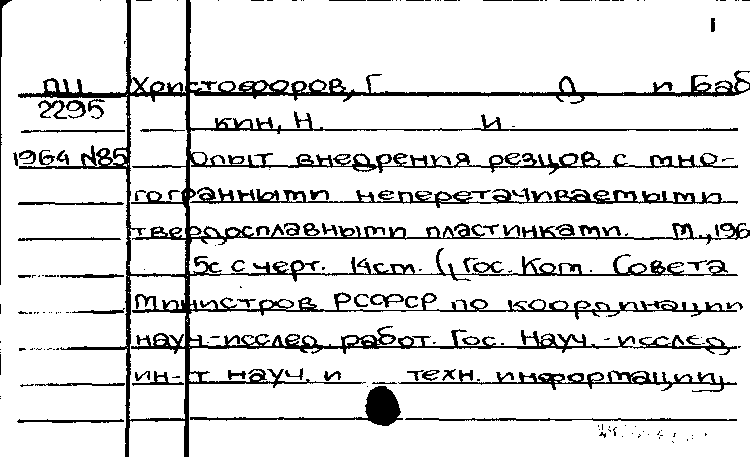 1
ПЦ Христофоров, Г. Д и Баб
2295 кин, Н. И.
1964 N85 Опыт внедрения резцов с мно-
гогранными неперетачиваемыми
твердосплавными пластинками. М., 196
5с с черт. 14см. (Гос. Ком. Совета
Министров РСФСР по координации
науч-исслед. работ. Гос. Науч.-исслед
ин-т науч. и техн. информации